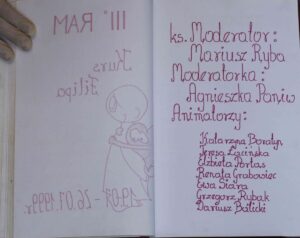 III° RAM
Kurs
Filipa
19.07 - 26.07.1999r.
ks. Moderator:
Mariusz Ryba
Moderatorka:
Agnieszka Paniw
Animatorzy:
Katarzyna Boratyn
Teresa
Elżbieta Portas
Renata Grabowiec
Ewa Stara
Grzegorz Rybak
Dariusz Balicki